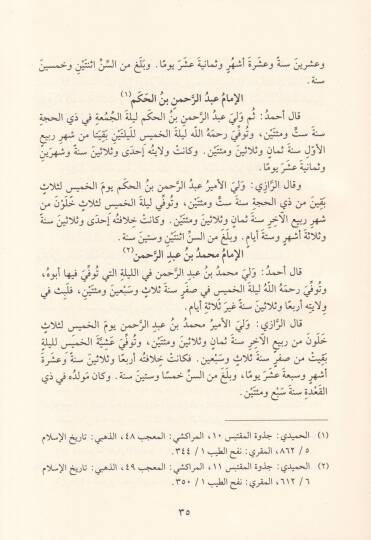 وعشرين سنةً وعشرةَ أشهُرٍ وثمانيةَ عشَرَ يومًا. وبَلَغ من السنِّ اثنتَيْنِ وخمسينَ
سنة.
الإمامُ عبدُ الرَّحمنِ بنُ الحَكَم(١)
قال أحمدُ: ثُم وَلِيَ عبدُ الرَّحمنِ بنُ الحَكَم ليلةَ الجُمُعةِ في ذي الحجةِ
سنةَ ستٍّ ومئتَيْن، وتُوفِّيَ رحمَهُ اللهُ ليلةَ الخميس للَيلتَيْنِ بَقِيَتا من شهرِ ربيعٍ
الأوّل سنةَ ثمانٍ وثلاثينَ ومئتَيْن. وكانت ولايتُه إحدَى وثلاثينَ سنةً وشهرَيْنِ
وثمانيةَ عشَرَ يومًا.
وقال الرَّازي: وَلِيَ الأميرُ عبدُ الرَّحمن بنُ الحكَم يومَ الخميس لثلاثٍ
بَقِينَ من ذي الحجةِ سنةَ ستٍّ ومئتَيْن، وتوفِّيَ ليلةَ الخميس لثلاثٍ خَلَوْنَ من
شهرِ ربيعٍ الآخِرِ سنةَ ثمانٍ وثلاثينَ ومئتَيْن. وكانتْ خلافتُه إحدَى وثلاثينَ سنةً
وثلاثةَ أشهرٍ وستةَ أيام. وبلَغَ من السنِّ اثنتَيْنِ وستينَ سنة.
الإمامُ محمدُ بنُ عبدِ الرَّحمن(٢)
قال أحمدُ: وَلِيَ محمدُ بنُ عبدِ الرَّحمن في الليلةِ التي تُوفِّيَ فيها أبوهُ،
وتوفِّيَ رحمَهُ اللهُ ليلةَ الخميس في صفَرٍ سنةَ ثلاثٍ وسَبْعينَ ومئتَيْن، فلَبِثَ في
ولايتِه أربعًا وثلاثينَ سنةً غيرَ ثلاثةِ أيام.
قال الرازي: وَلِيَ الأميرُ محمدُ بنُ عبدِ الرَّحمن يومَ الخميس لثلاثٍ
خَلَوْنَ من ربيعٍ الآخِرِ سنةَ ثمانٍ وثلاثينَ ومئتَيْن، وتوفِّيَ عَشِيَّةَ الخميس لليلةٍ
بَقِيَتْ من صفَرٍ سنةَ ثلاثٍ وسَبْعين. فكانتْ خِلافتُه أربعًا وثلاثينَ سنةً وعَشَرةَ
أشهُرٍ وسبعةَ عشَرَ يومًا، وبلَغَ من السنِّ خمسًا وستينَ سنة. وكان مَولدُه في ذي
القَعْدةِ سنةَ سَبْعٍ ومئتَيْن.
(١) الحميدي: جذوة المقتبس ١٠، المراكشي: المعجب ٤٨، الذهبي: تاريخ الإسلام
٥ / ٨٦٢، المقري: نفح الطيب ١ / ٣٤٤.
(٢) الحميدي: جذوة المقتبس ١١، المراكشي: المعجب ٤٩، الذهبي: تاريخ الإسلام
٦ / ٦١٢، المقري: نفح الطيب ١ / ٣٥٠.
٣٥